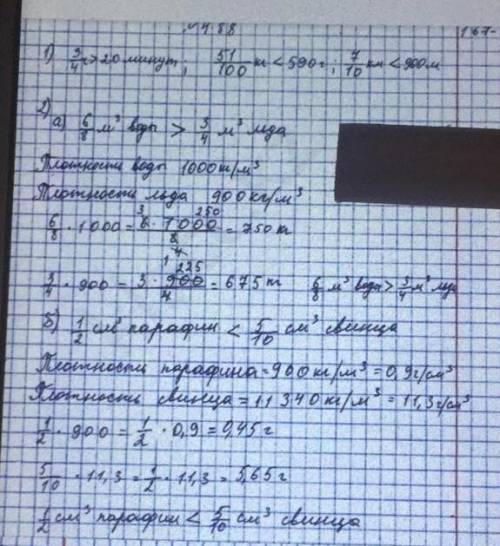 № 4.88
167-
1) 3/4 ч > 20 минут; 51/100 кг < 590 г; 7/10 км < 900 м
2)
а) 6/8 м³ воды > 3/4 м³ льда
Плотность воды 1000 кг/м³
Плотность льда 900 кг/м³
6/8 · 1000 = 6 · 1000/8 = 750 кг
3/4 · 900 = 3 · 900/4 = 675 кг 6/8 м³ воды > 3/4 м³ льда
б) 1/2 см³ парафин < 5/10 см³ свинца
Плотность парафина = 900 кг/м³ = 0,9 г/см³
Плотность свинца = 11 340 кг/м³ = 11,3 г/см³
1/2 · 900 = 1/2 · 0,9 = 0,45 г
5/10 · 11,3 = 1/2 · 11,3 = 5,65 г
1/2 см³ парафин < 5/10 см³ свинца